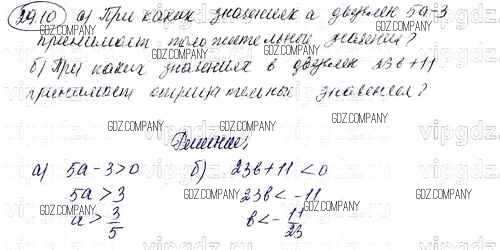 29.10 а) При каких значениях а двучлен 5а-3
принимает положительные значения?
б) При каких значениях в двучлен 23в+11
принимает отрицательные значения?
Решение:
а) 5а-3>0 б) 23в+11<0
5а>3 23в<-11
а>3/5 в<-11/23
GDZ.COMPANY
vipgdz